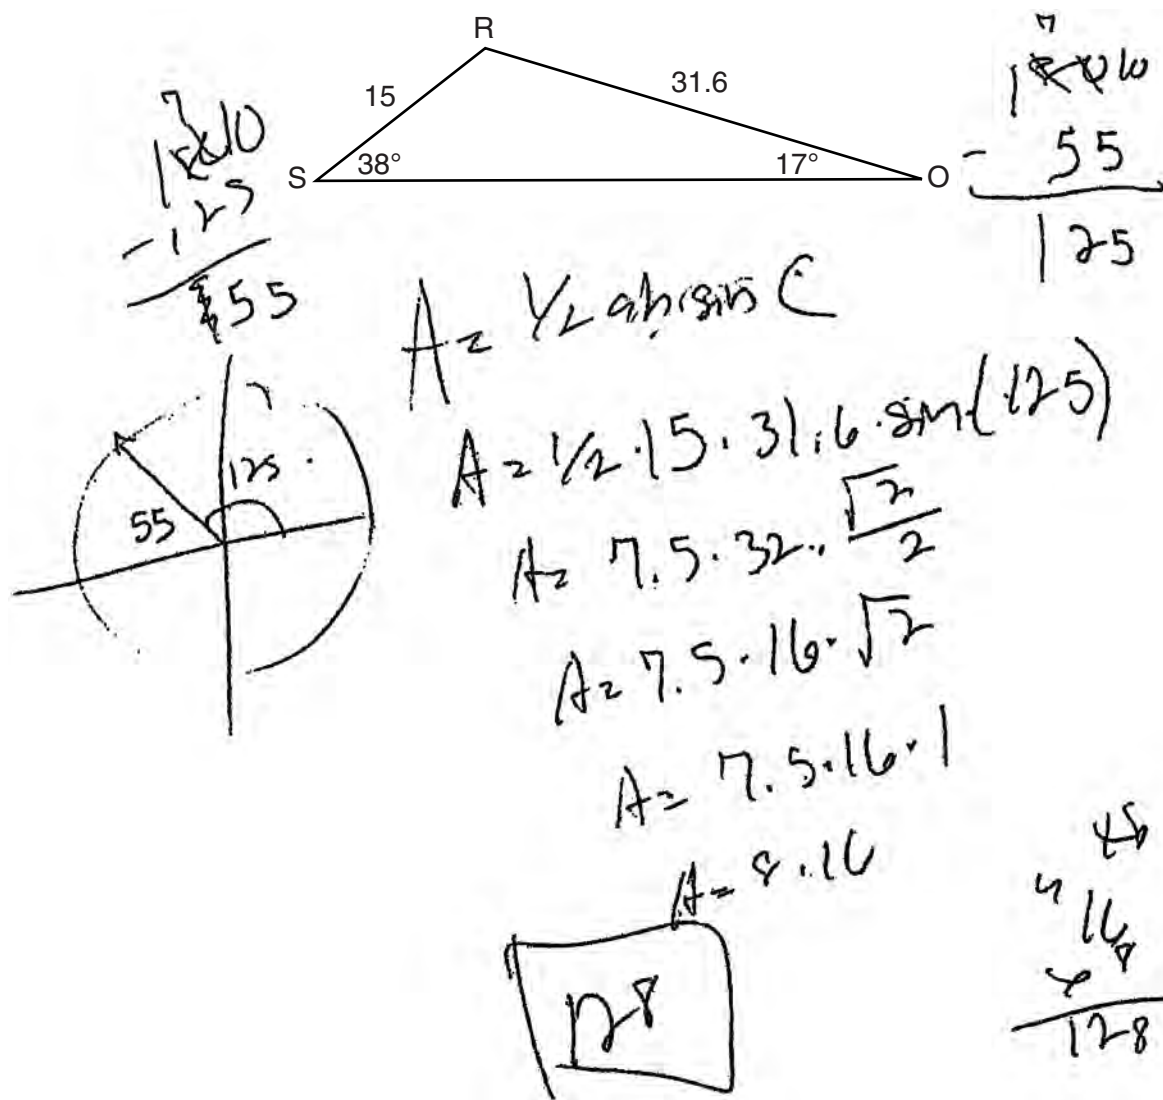 R
15
31.6
S
38°
17°
O
7
1 8 10
- 125
55
7
1 8 0 10
- 55
125
A = 1/2 ab sin C
A = 1/2 · 15 · 31.6 · sin(125)
A = 7.5 · 32 · √2/2
A = 7.5 · 16 · √2
A = 7.5 · 16 · 1
A = 8 · 16
128
55
125
4
16
8
128